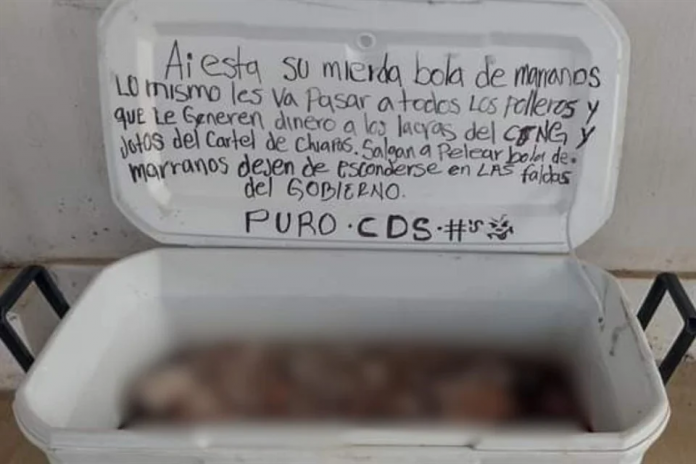 Ai esta su mierda bola de marranos
LO mismo les va Pasar a todos Los Polleros y
que Le Generen dinero a los lacras del CJNG y
Jotos del Cartel de Chiapas. Salgan a Pelear bola de.
marranos dejen de esconderse en LAS faldas
del GOBIERNO.
PURO • CDS • #